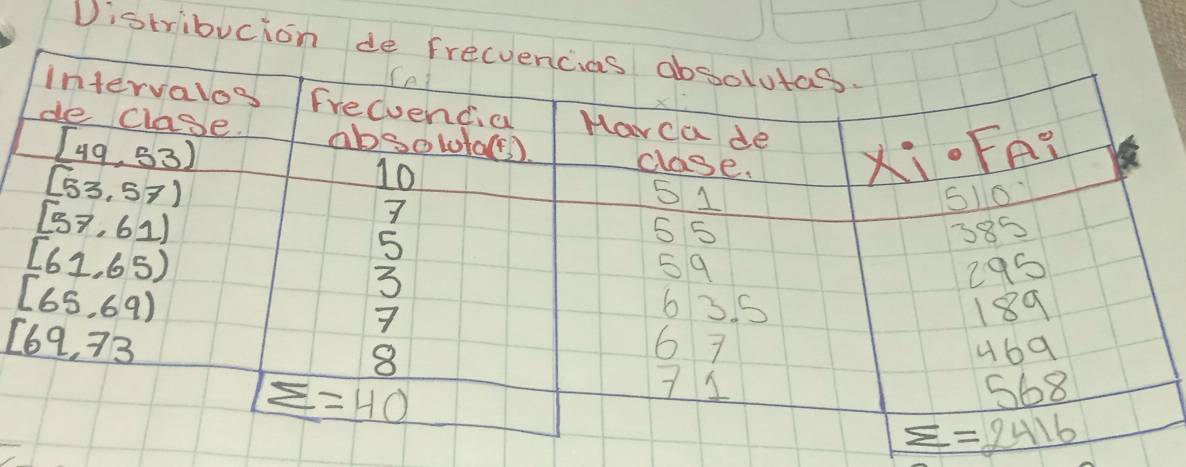 Distribución de frecuencias absolutas.
Intervalos de clase. | fai Frecuencia absoluta(f). | xi Marca de clase. | Xi•FAi
[49,53) | 10 | 51 | 510
[53,57) | 7 | 55 | 385
[57,61) | 5 | 59 | 295
[61,65) | 3 | 63.5 | 189
[65,69) | 7 | 67 | 469
[69,73 | 8 | 71 | 568
Σ=40 | Σ=2416